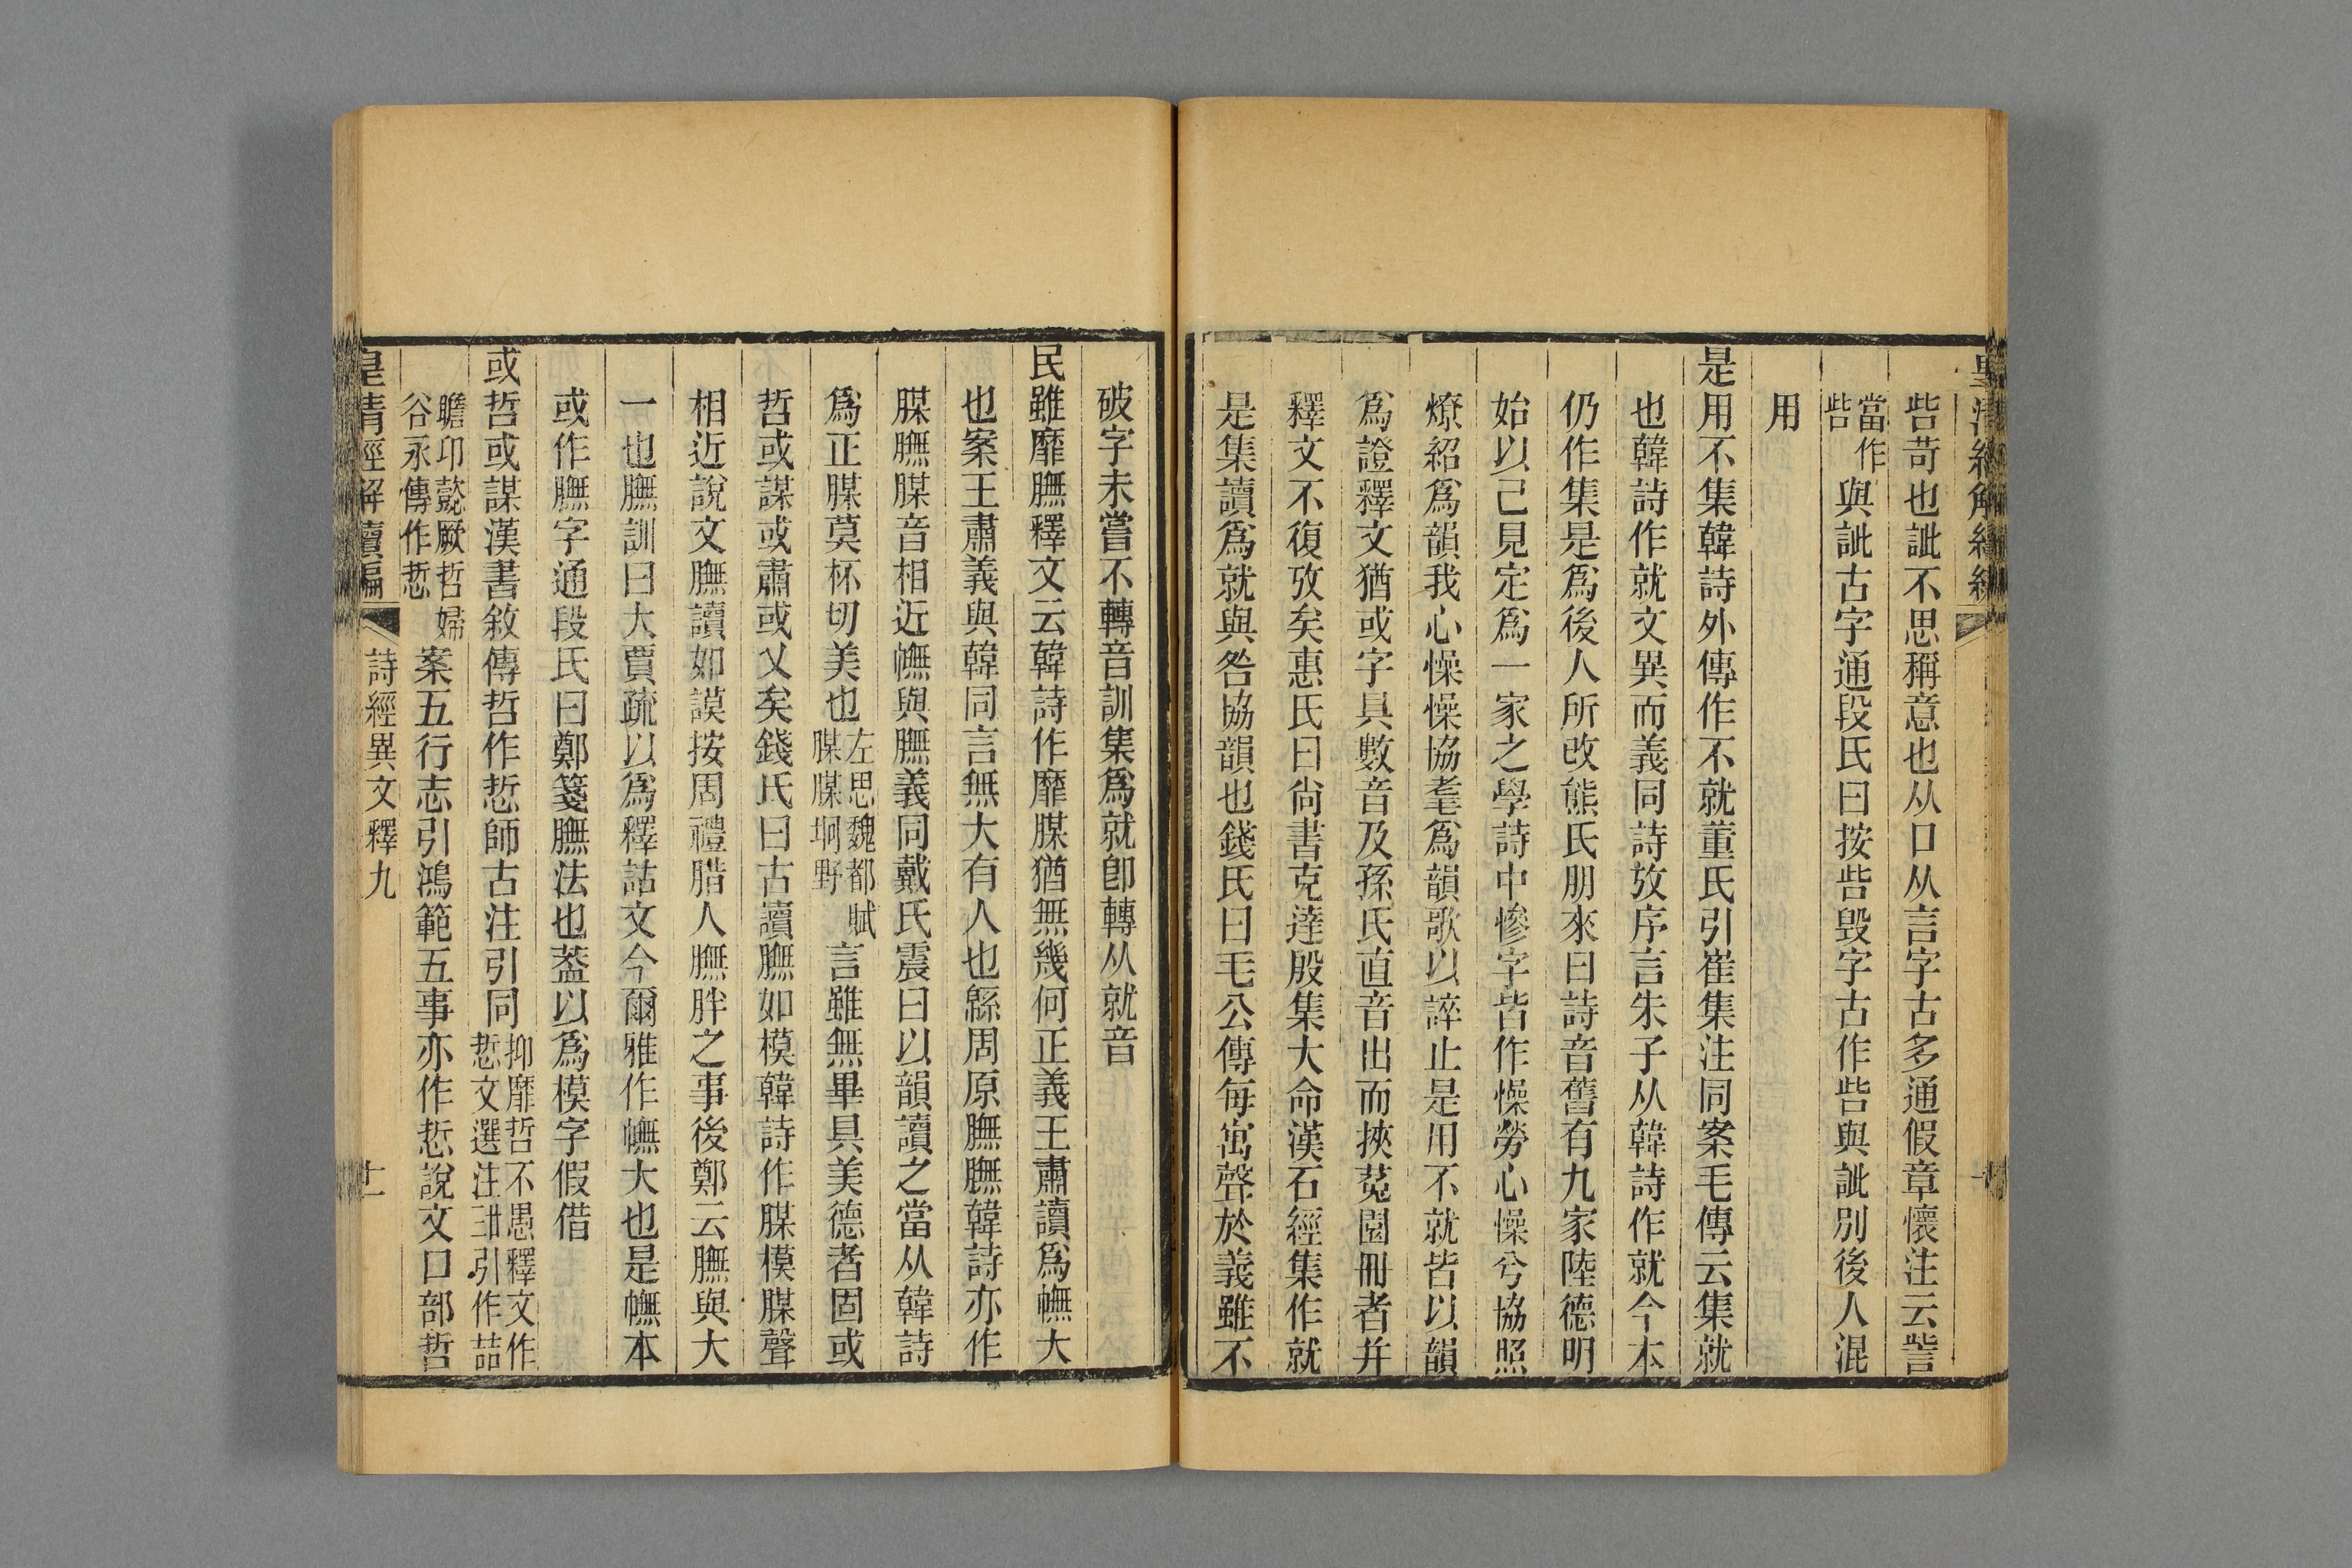 呰苛也訿不思稱意也从口从言字古多通假章懷注云訾
當作呰與訿古字通段氏曰按呰毁字古作呰與訿別後人混
用
是用不集韓詩外傳作不就董氏引崔集注同案毛傳云集就
也韓詩作就文異而義同詩攷序言朱子从韓詩作就今本
仍作集是爲後人所改熊氏朋來曰詩音舊有九家陸德明
始以己見定爲一家之學詩中慘字皆作懆勞心懆兮協照
燎紹爲韻我心懆懆協耄爲韻歌以誶止是用不就皆以韻
爲證釋文猶或字具數音及孫氏直音出而挾菟園冊者并
釋文不復攷矣惠氏曰尙書克達殷集大命漢石經集作就
是集讀爲就與咎協韻也錢氏曰毛公傳每寓聲於義雖不
破字未嘗不轉音訓集爲就卽轉从就音
民雖靡膴釋文云韓詩作靡腜猶無幾何正義王肅讀爲幠大
也案王肅義與韓同言無大有人也緜周原膴膴韓詩亦作
腜膴腜音相近幠與膴義同戴氏震曰以韻讀之當从韓詩
爲正腜莫杯切美也左思魏都賦腜腜坰野言雖無畢具美德者固或
哲或謀或肅或乂矣錢氏曰古讀膴如模韓詩作腜模腜聲
相近說文膴讀如謨按周禮腊人膴胖之事後鄭云膴與大
一也膴訓曰大賈疏以爲釋詁文今爾雅作幠大也是幠本
或作膴字通段氏曰鄭箋膴法也葢以爲模字假借
或哲或謀漢書敘傳哲作悊師古注引同抑靡哲不愚釋文作悊文選注𠕋引作喆
瞻卬懿厥哲婦谷永傳作悊案五行志引鴻範五事亦作悊說文口部哲
皇淸經解續編
詩經異文釋九
十一